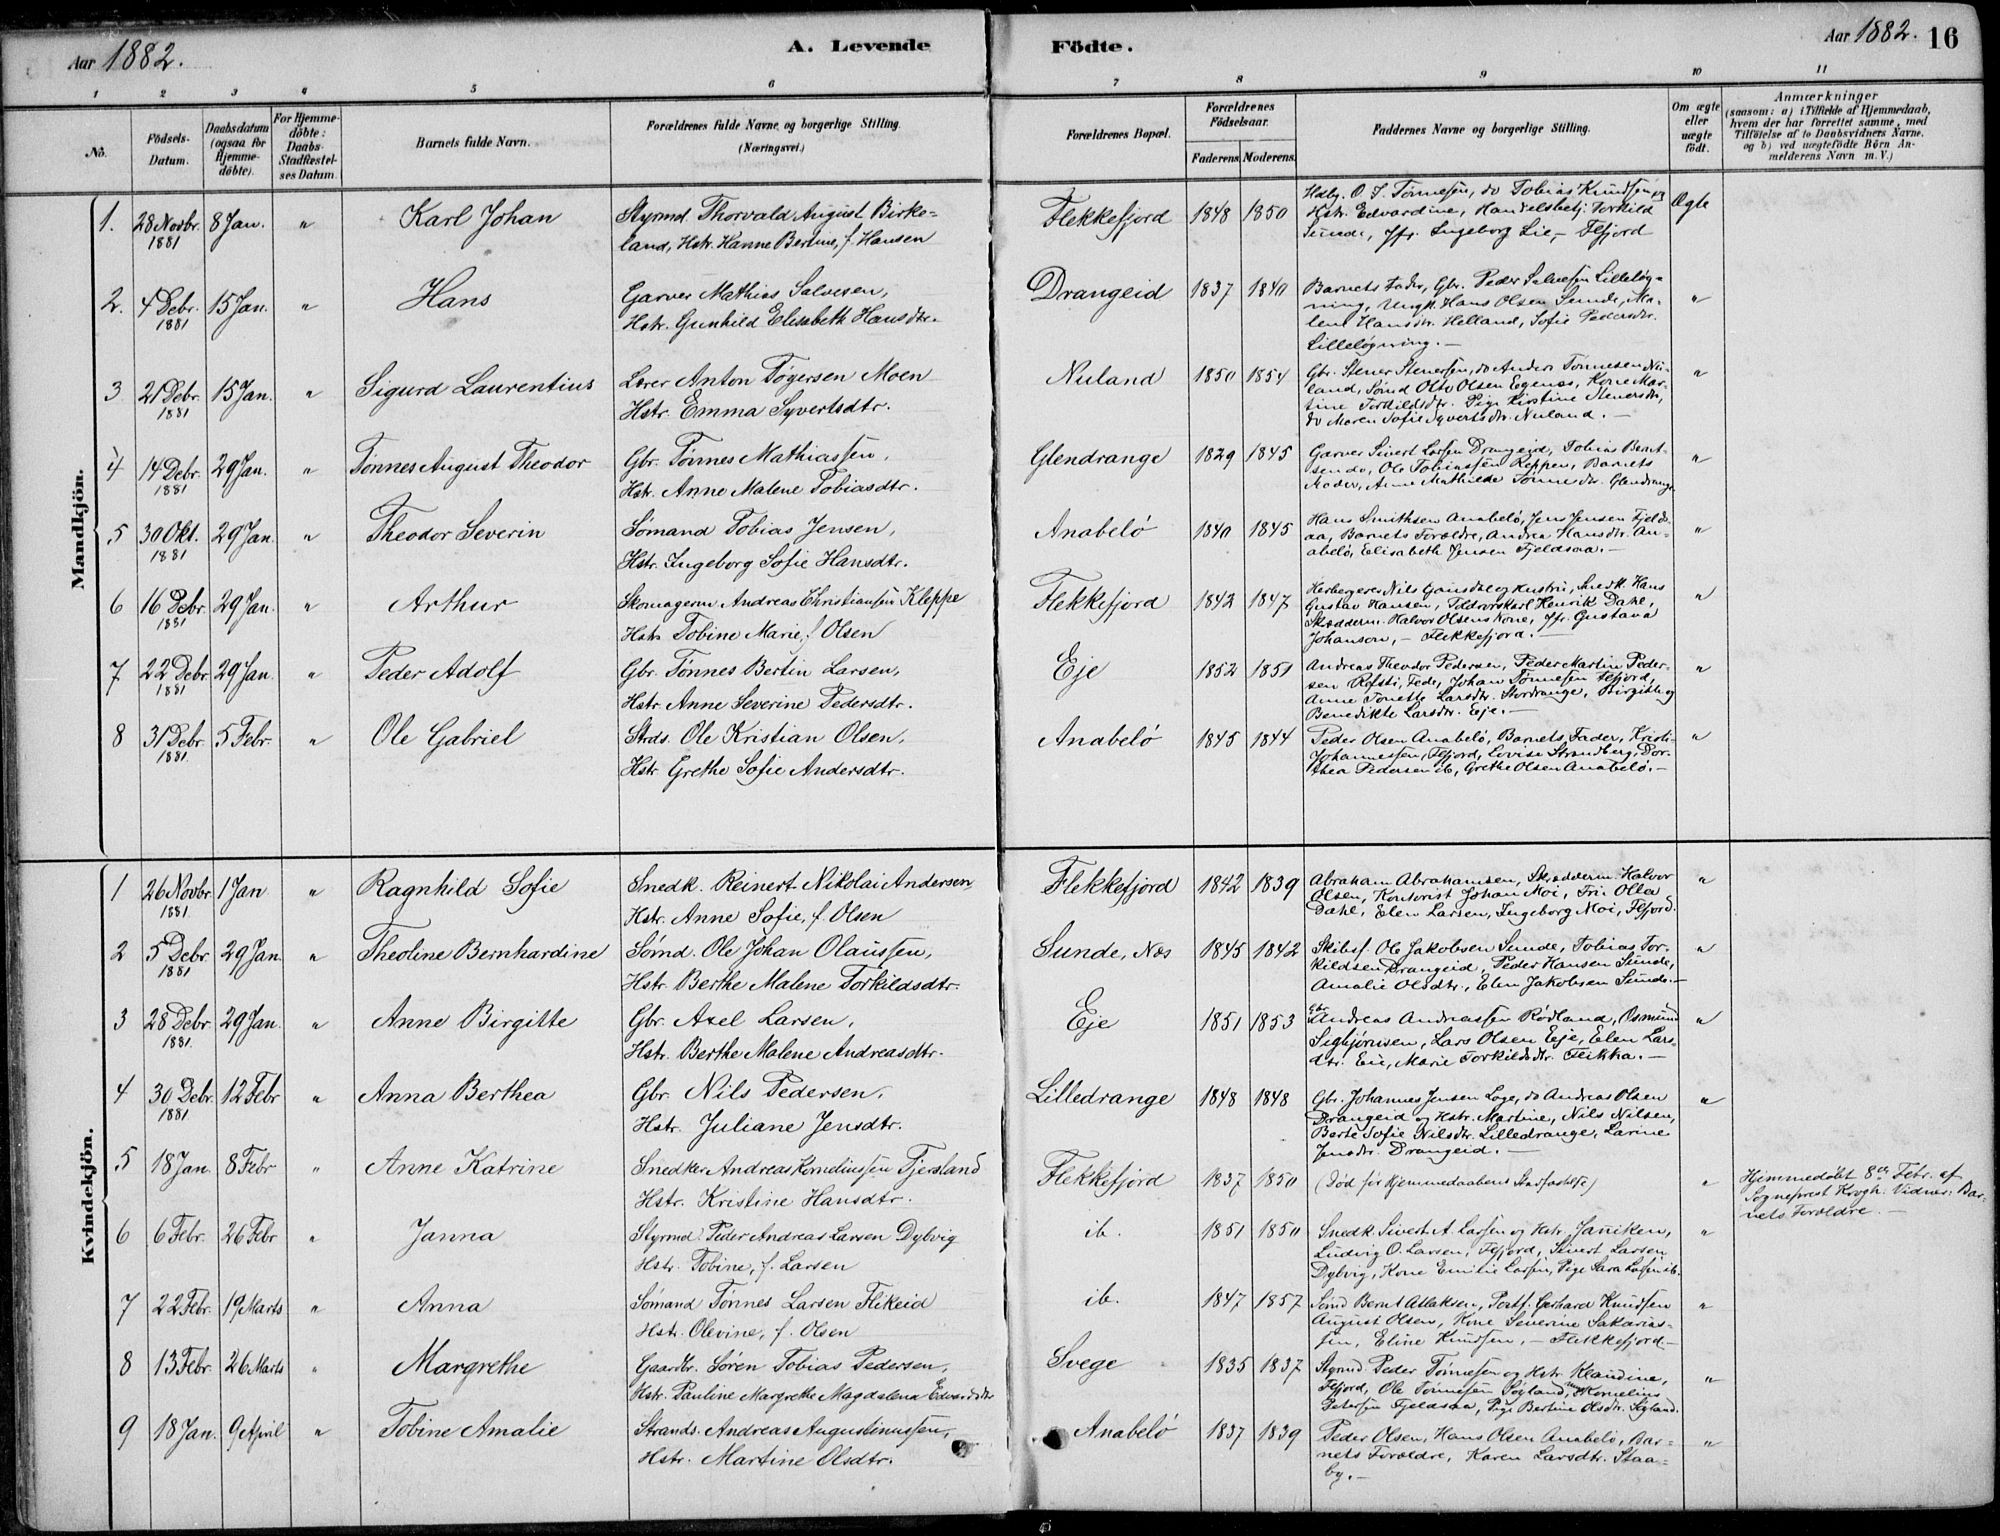 Aar 1882.
A. Levende Födte.
Aar 1882. 16
1 2 3 4 5 6 7 8 9 10 11
No.
Födsels-Datum.
Daabsdatum (ogsaa for Hjemmedöbte).
For Hjemmedöbte: Daabs-Stadfæstelses Datum.
Barnets fulde Navn.
Forældrenes fulde Navne og borgerlige Stilling. (Næringsvei.)
Forældrenes Bopæl.
Forældrenes Födselsaar.
Faderens. Moderens.
Faddernes Navne og borgerlige Stilling.
Om ægte eller uægte født.
Anmærkninger
(saasom: a) i Tilfælde af Hjemmedaab,
hvem der har forrettet samme, med
Tilföielse af to Daabsvidners Navne.
og b) ved uægtefödte Börn Anmelderens Navn m. V.)
Mandkjön.
1. 28 Novbr. 1881 8 Jan. " Karl Johan
Styrmd Thorvald August Birkeland, Hstr. Hanne Bertine, f. Hansen
Flekkefjord 1848 1850
Hdbg. O. F. Tönnesen, do Tobias Knudsen og
Hstr. Edvardine, Handelsbetj. Torkild
Sunde, Jfr. Ingeborg Lie, - Ffjord
Ægte
2. 4 Debr. 1881 15 Jan. " Hans
Garver Mathias Salvesen,
Hstr. Gunhild Elisabeth Hansdtr.
Drangeid 1837 1840
Barnets Fader, Gbr. Peder Salvesen Lilleløgning, Ungk. Hans Olsen Sunde, Malene Hansdtr. Helland, Sofie Pedersdtr.
Lilleløgning. - "
3 21 Debr. 1881 15 Jan. " Sigurd Laurentius
Lærer Anton Tögersen Moen
Hstr. Emma Syvertsdtr.
Nuland 1850 1854
Gbr. Stener Stenersen, do Anders Tønnesen Nuland, Sömd Otto Olsen Egenes, Kone Martine Torkildsdtr. Pige Kirstine Stenersdtr,
do Maren Sofie Syvertsdtr. Nuland. - "
4 14 Debr. 1881 29 Jan. " Tönnes August Theodor
Gbr. Tönnes Mathiassen,
Hstr. Anne Malene Tobiasdtr.
Glendrange 1829 1845
Garver Sivert Larsen Drangeid, Tobias Berntsen do, Ole Tobiassen Røppen, Barnets
Moder, Anne Mathilde Tønnesdtr. Glendrange "
5 30 Okt. 1881 29 Jan. " Theodor Severin
Sömand Tobias Jensen,
Hstr. Ingeborg Sofie Hansdtr.
Anabelö 1840 1845
Hans Smithsen Anabelö, Jens Jensen Fjeldsaa, Barnets Forældre, Andrea Hansdtr. Anabelö, Elisabeth Jensen Fjeldsaa. - "
6 16 Debr. 1881 29 Jan. " Arthur
Skomagerm Andreas Christiansen Kleppe
Hstr Tobine Marie, f. Olsen
Flekkefjord 1842 1847
Herbergerer Nils Gausdal og Hustru, Snedk. Hans
Gustav Hansen, Toldrorskarl Henrik Dahl,
Skrædderm. Halvor Olsens Kone, Jfr. Gustava
Johanson, - Flekkefjord. - "
7 22 Debr. 1881 29 Jan. " Peder Adolf
Gbr. Tönnes Bertin Larsen,
Hstr. Anne Severine Pedersdtr.
Eje 1852 1851
Andreas Theodor Pedersen, Peder Martin Pedersen Rofsti, Fede, Johan Tønnesen Ffjord,
Anne Tonette Larsdtr. Stordrange, Birgitte og
Benedikte Larsdtr. Eje. - "
8 31 Debr. 1881 5 Febr. " Ole Gabriel
Strds. Ole Kristian Olsen,
Hstr. Grethe Sofie Andersdtr.
Anabelö 1845 1844
Peder Olsen Anabelö, Barnets Fader, Kristi-
Johannessen, Ffjord, Lovise Strandberg, Dorthea Pedersen ib, Grethe Olsen Anabelö. - "
Kvindekjön.
1 26 Novbr. 1881 1 Jan " Ragnhild Sofie
Snedk. Reinert Nikolai Andersen
Hstr. Anne Sofie, f. Olsen
Flekkefjord 1842 1839
Abraham Abrahamsen, Skrædderm Halvor
Olsen, Kontorist Johan Moi, Fru Olea
Dahl, Elen Larsen, Ingeborg Moi, Ffjord. "
2 5 Debr. 1881 29 Jan. " Theoline Bernhardine
Sömd. Ole Johan Olaussen,
Hstr. Berthe Malene Torkildsdtr.
Sunde, Næs 1845 1842
Skibsf. Ole Jakobsen Sunde, Tobias Torkildsen Drangeid, Peder Hansen Sunde,
Amalie Olsdtr., Elen Jakobsen Sunde. - "
3 28 Debr. 1881. 29 Jan. " Anne Birgitte
Gbr. Axel Larsen,
Hstr. Berthe Malene Andreasdtr.
Eje 1851 1853
Gbr. Andreas Andreassen Rødland, Osmund
Sigbjörnsen, Lars Olsen Eje, Elen Larsdtr. Eie, Marie Torkildsdtr. Flikka. - "
4 30 Debr. 1881 12 Febr " Anna Berthea
Gbr. Nils Pedersen,
Hstr. Juliane Jensdtr.
Lilledrange 1848 1848
Gbr. Johannes Jensen Loge, do Andreas Olsen
Drangeid og Hstr. Martine, Nils Nilsen,
Berte Sofie Nilsdtr. Lilledrange, Larine
Jensdtr. Drangeid. - "
5 18 Jan. 8 Febr " Anne Katrine
Snedker Andreas Korneliussen Tjersland
Hstr. Kristine Hansdtr.
Flekkefjord 1837 1850
(Död før Hjemmedaabens Stadfæstelse) "
Hjemmedöbt 8de Febr. af
Sogneprest Krogh. Vidner: Barnets Forældre. -
6 6 Febr. 26 Febr " Janna
Styrmd. Peder Andreas Larsen Dybvig
Hstr. Tobine, f. Larsen
ib. 1851 1850
Snedk Sivert A. Larsen og Hstr. Janiken,
Ludvig O. Larsen, Ffjord, Sivert Larsen
Dybvig, Kone Emilie Larsen, Pige Sara Larsen ib. "
7 22 Febr. 19 Marts " Anna
Sömand Tönnes Larsen Flikeid
Hstr. Olevine, f. Olsen
ib. 1847 1857
Sömd Bernt Atlaksen, Postf. Gerhard Knudsen
August Olsen, Kone Severine Sakariassen, Eline Knudsen, - Flekkefjord - "
8 13 Febr. 26 Marts " Margrethe
Gaardbr. Sören Tobias Pedersen,
Hstr. Pauline Margrethe Magdalena Edvardsdtr
Svege 1835 1837
Styrmd. Peder Tönnesen og Hstr. Klaudine,
Ffjord, Ole Tönnesen Söyland, Ungk Kornelius
Petersen Fjeldsaa, Pige Bertine Olsdtr. Sigland. "
9 18 Jan. 9 April " Tobine Amalie
Strands. Andreas Augustinussen,
Hstr. Martine Olsdtr.
Anabelö 1837 1839
Peder Olsen, Hans Olsen Anabelö, Barnets Forældre, Karen Larsdtr. Staaby. - "